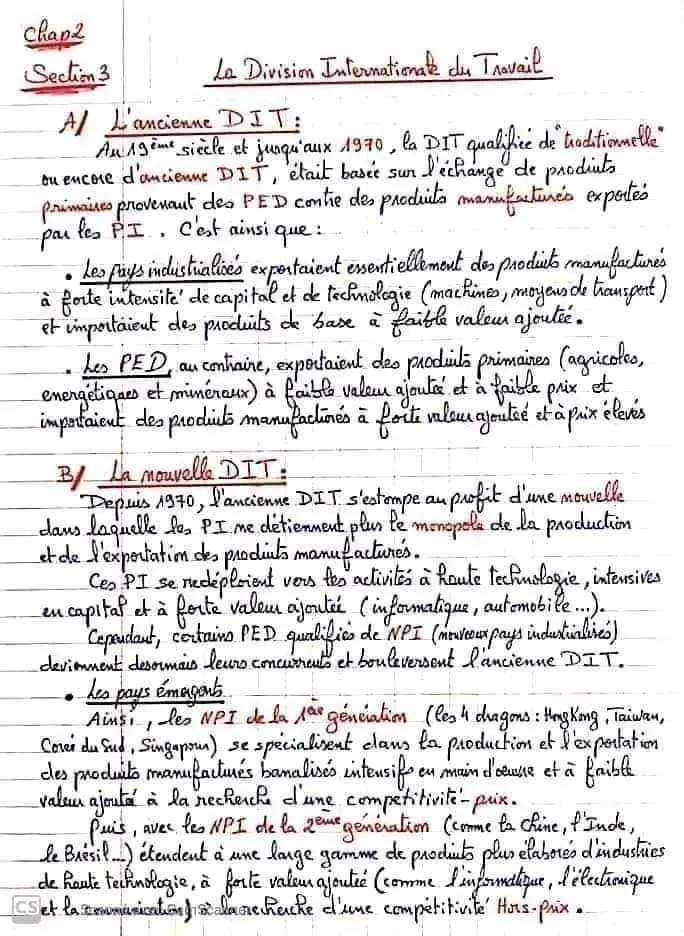 Chap2
Section 3
La Division Internationale du Travail
A/ L'ancienne DIT :
Au 19ème siècle et jusqu'aux 1970, la DIT qualifiée de "traditionnelle"
ou encore d'ancienne DIT, était basée sur l'échange de produits
primaires provenant des PED contre des produits manufacturés exportés
par les PI. C'est ainsi que :
• Les pays industrialisés exportaient essentiellement des produits manufacturés
à forte intensité de capital et de technologie (machines, moyens de transport)
et importaient des produits de base à faible valeur ajoutée.
• Les PED, au contraire, exportaient des produits primaires (agricoles,
energétiques et minéraux) à faible valeur ajoutée et à faible prix et
importaient des produits manufacturés à forte valeur ajoutée et à prix élevés
B/ La nouvelle DIT :
Depuis 1970, l'ancienne DIT s'estompe au profit d'une nouvelle
dans laquelle les PI ne détiennent plus le monopole de la production
et de l'exportation des produits manufacturés.
Ces PI se redéploient vers les activités à haute technologie, intensives
en capital et à forte valeur ajoutée (informatique, automobile ...).
Cependant, certains PED qualifiés de NPI (nouveaux pays industrialisés)
deviennent desormais leurs concurrents et bouleversent l'ancienne DIT.
• Les pays émergents
Ainsi, les NPI de la 1ère génération (les 4 dragons : Hong Kong, Taiwan,
Coreé du Sud, Singapour) se spécialisent dans la production et l'exportation
des produits manufacturés banalisés intensifs en main d'oeuvre et à faible
valeur ajoutée à la recherche d'une competitivité-prix.
Puis, avec les NPI de la 2ème génération (comme la Chine, l'Inde,
le Brésil...) étendent à une large gamme de produits plus élaborés d'industries
de haute technologie, à forte valeur ajoutée (comme l'informatique, l'électronique
CS et la communication) à la recherche d'une compétitivité Hors-prix.